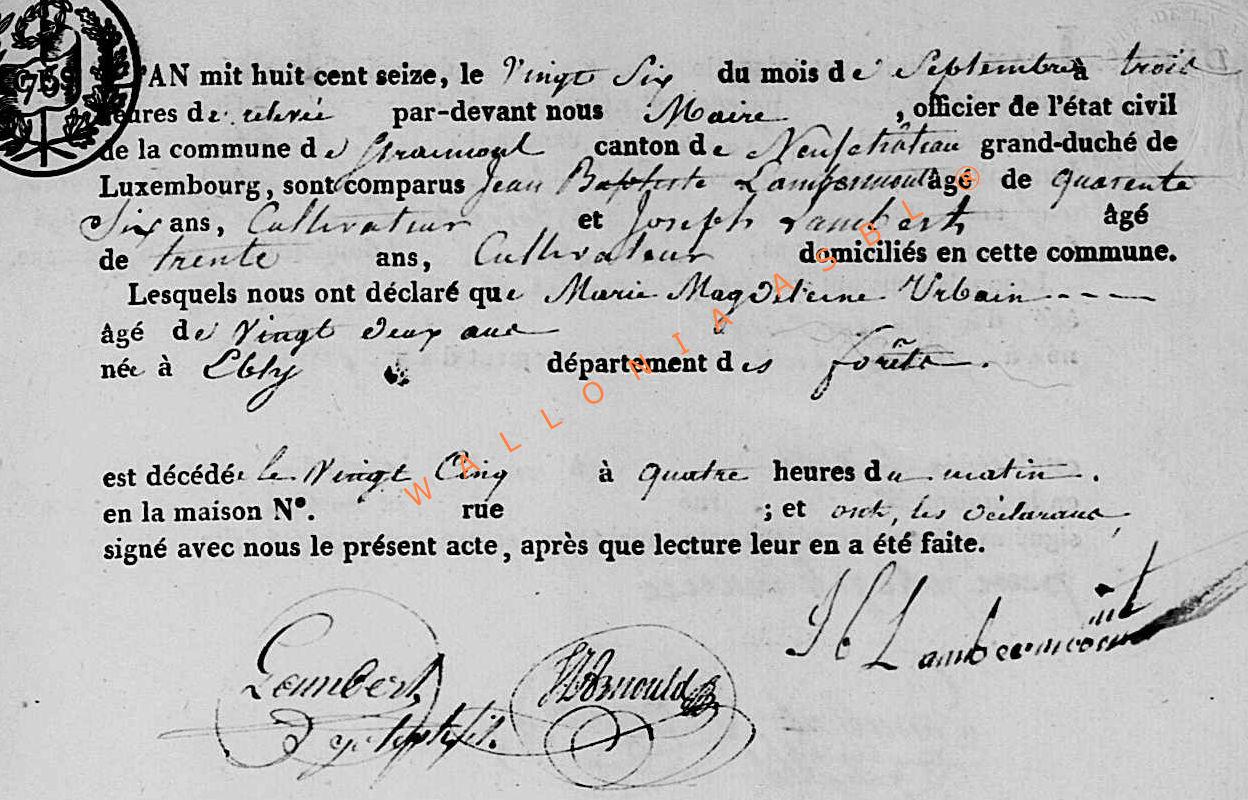 L'AN mil huit cent seize, le Vingt Six du mois de Septembre à trois
heures de relevée par-devant nous Maire, officier de l'état civil
de la commune de Gramont canton de Neufchâteau grand-duché de
Luxembourg, sont comparus Jean Baptiste Lambermont âgé de quarente
Six ans, Cultivateur et Joseph Lambert âgé
de trente ans, Cultivateur domiciliés en cette commune.
Lesquels nous ont déclaré que Marie Magdeleine Urbain - - - -
âgé de Vingt deux ans
née à Ebly département des forêts.
est décédée le Vingt Cinq à quatre heures du matin.
en la maison N°. rue ; et ont, les déclarans,
signé avec nous le présent acte, après que lecture leur en a été faite.
Lambert
WALLONIA ASBL ©